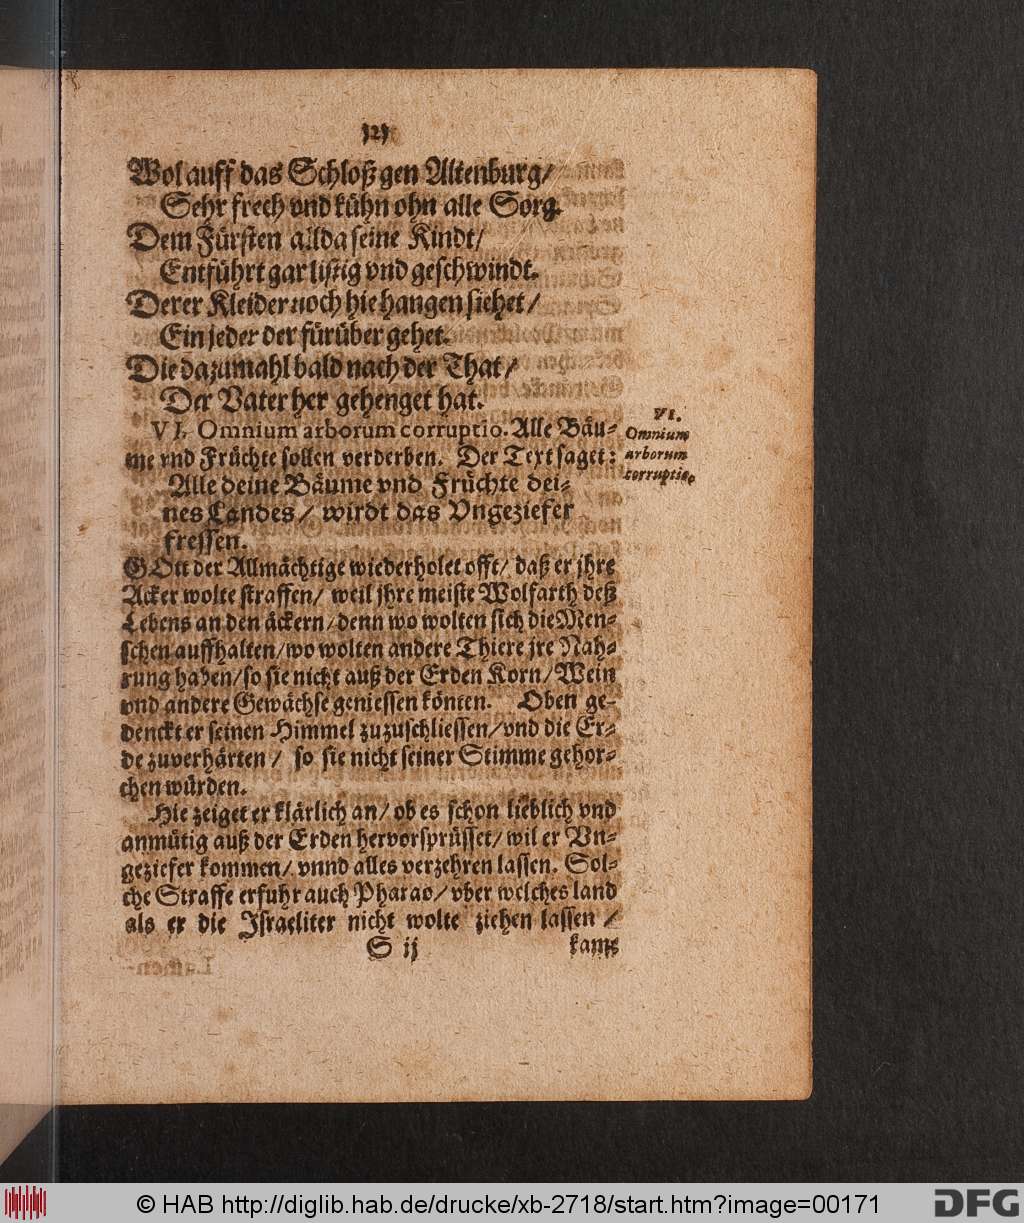 Wol auff das Schloß gen Altenburg/
Sehr frech vnd kühn ohn alle Sorg.
Dem Fürsten allda seine Kindt/
Entführt gar listig vnd geschwindt.
Derer Kleider noch hie hangen siehet/
Ein jeder der fürüber gehet.
Die dazumahl bald nach der That/
Der Vater her gehenget hat.
VI. Omnium arborum corruptio. Alle Bäu-
me vnd Früchte sollen verderben. Der Text saget:
VI.
Omnium
arborum
corruptio.
Alle deine Bäume vnd Früchte dei-
nes Landes/ wirdt das Vngeziefer
fressen.
GOtt der Allmächtige wiederholet offt/ daß er jhre
Äcker wolte straffen/ weil jhre meiste Wolfarth deß
Lebens an den äckern/ denn wo wolten sich die Men-
schen auffhalten/ wo wolten andere Thiere jre Nah-
rung haben/ so sie nicht auß der Erden Korn/ Wein
vnd andere Gewächse geniessen könten. Oben ge-
denckt er seinen Himmel zuzuschliessen/ vnd die Er-
de zuverhärten/ so sie nicht seiner Stimme gehor-
chen würden.
Hie zeiget er klärlich an/ ob es schon lieblich vnd
anmütig auß der Erden hervorsprüsset/ wil er Vn-
geziefer kommen/ vnnd alles verzehren lassen. Sol-
che Straffe erfuhr auch Pharao/ vber welches land
als er die Israeliter nicht wolte ziehen lassen/
S ij kame
© HAB http://diglib.hab.de/drucke/xb-2718/start.htm?image=00171
DFG